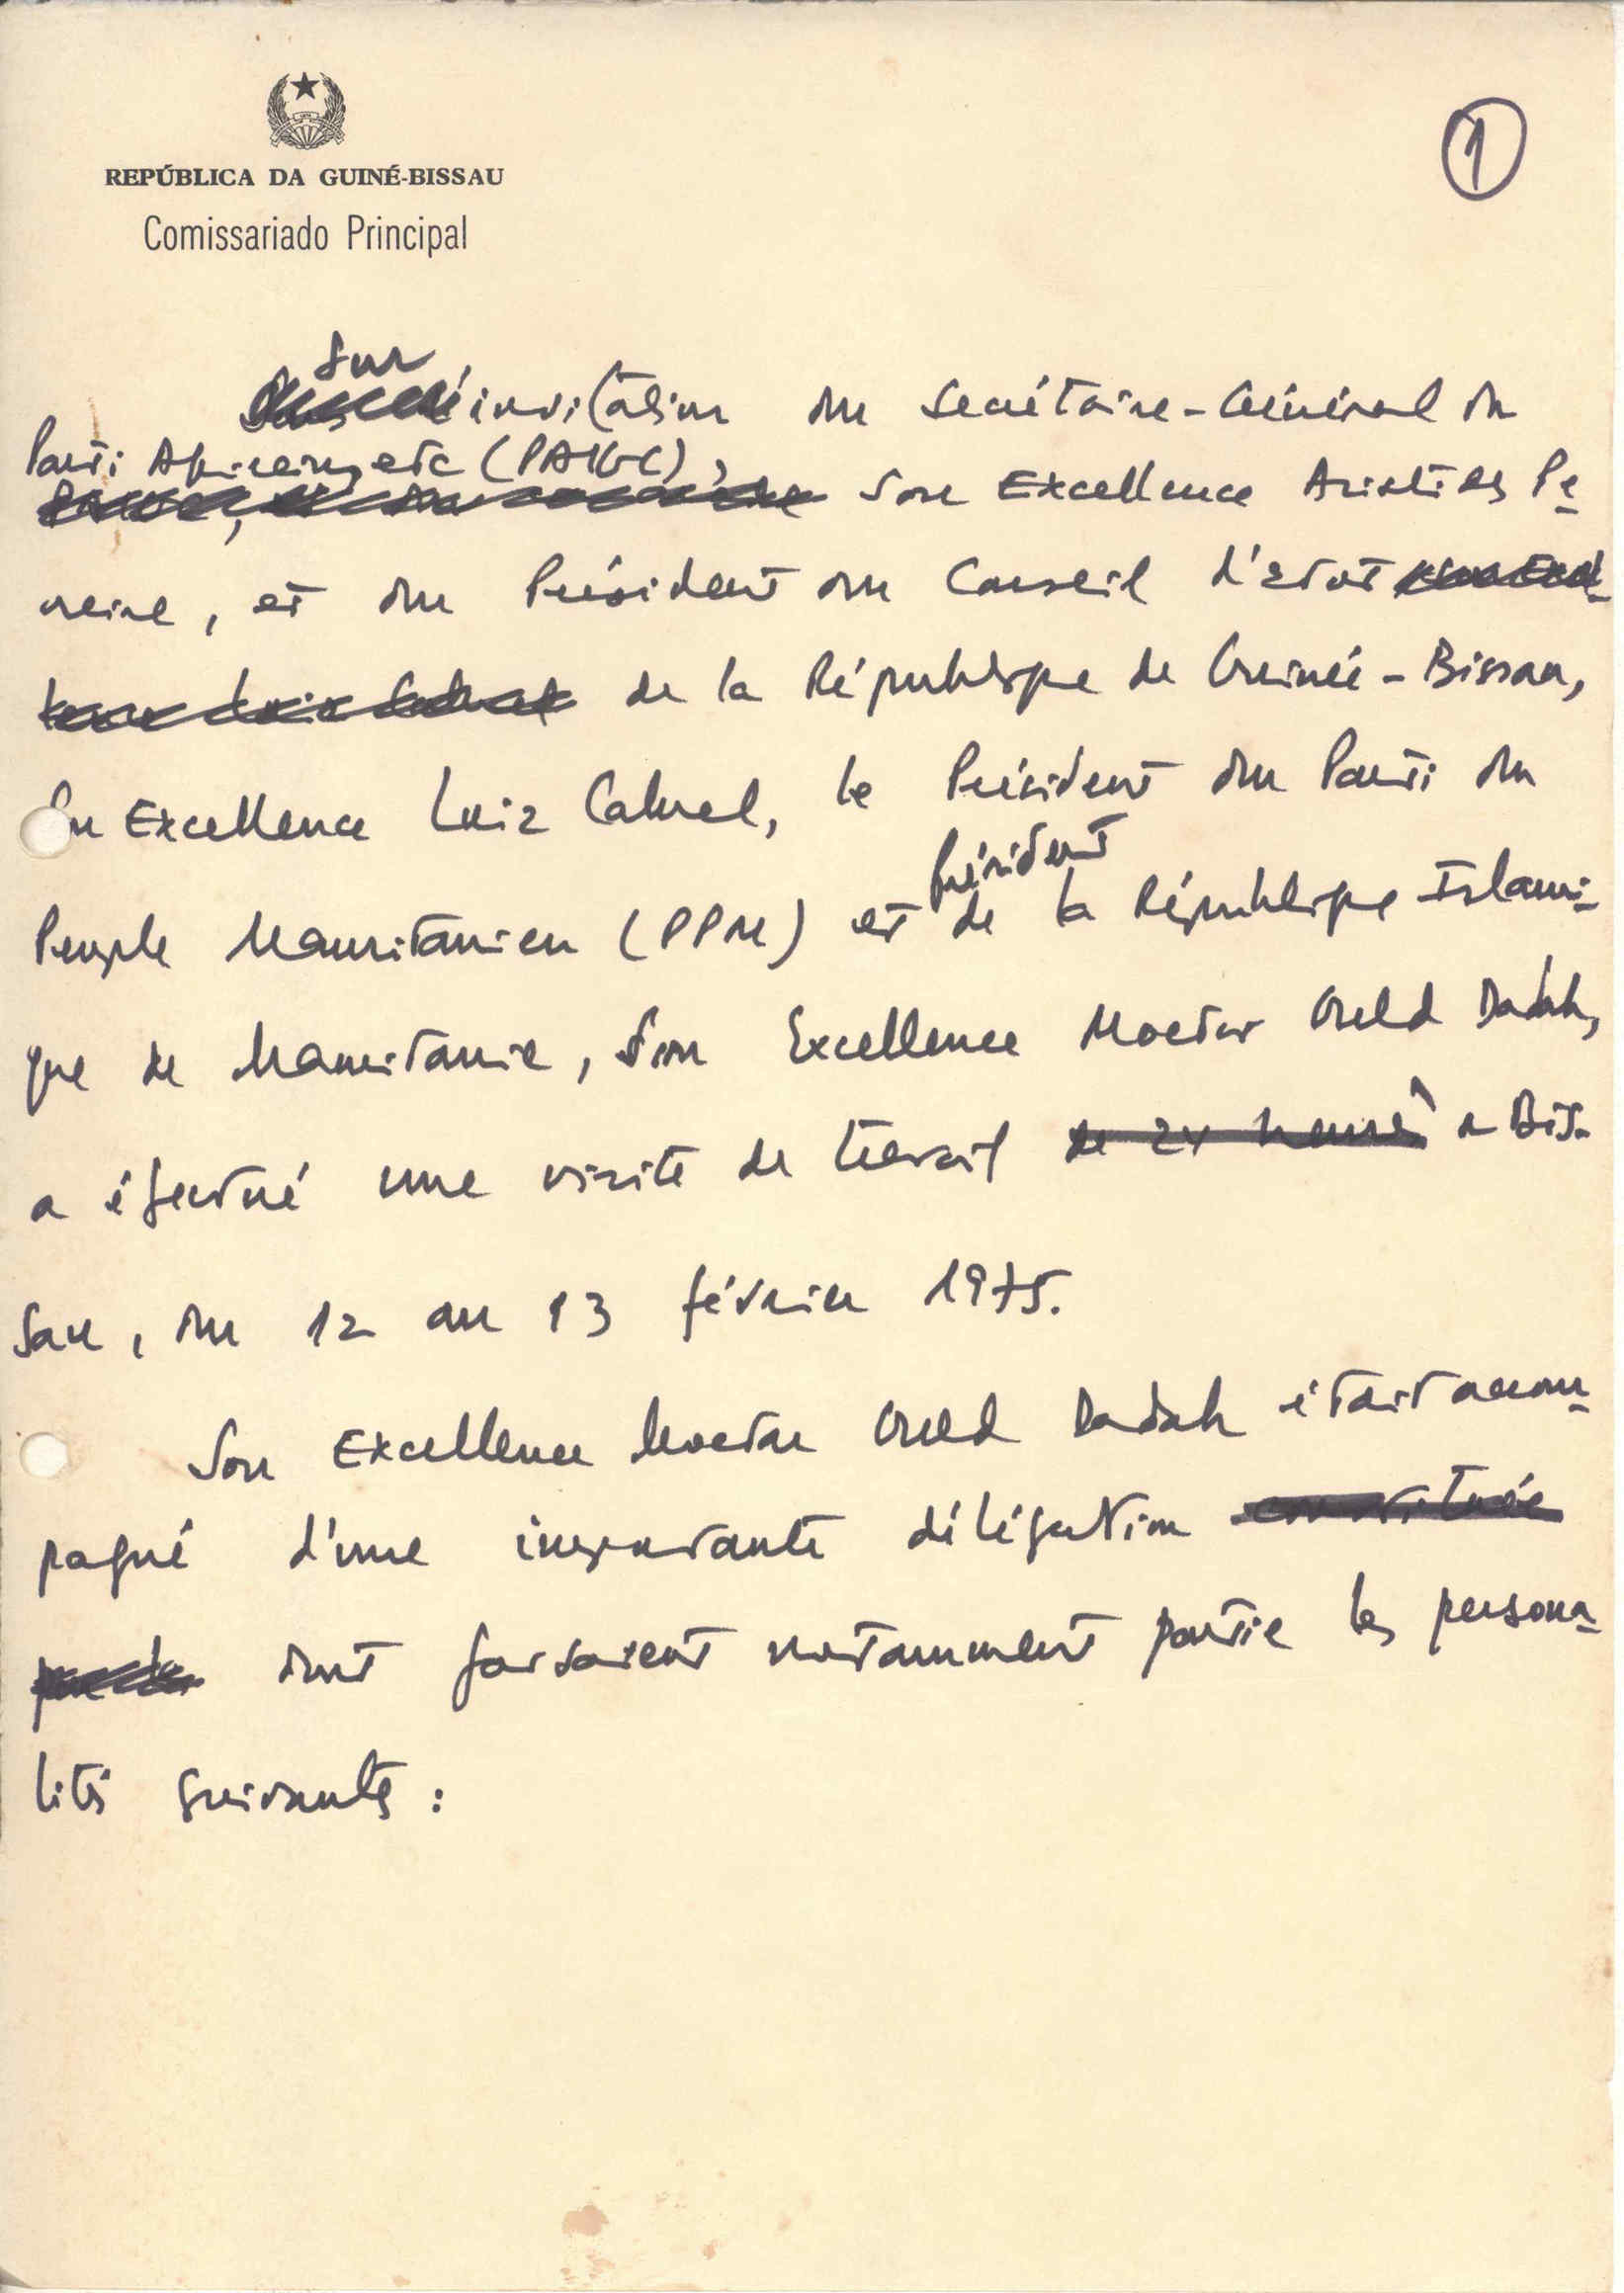 REPÚBLICA DA GUINÉ-BISSAU
Comissariado Principal
1
Sur
l'invitation du Secrétaire-Général du
Parti Africain, etc (PAIGC),
Son Excellence Aristides Pe-
reira, et du Président du Conseil d'Etat
de la République de Guinée-Bissau,
Son Excellence Luiz Cabral, le Président du Parti du
Président
Peuple Mauritanien (PPM) et de la République Islami-
que de Mauritanie, Son Excellence Moctar Ould Dadah,
a éfectué une visite de travail de 24 heures à Bis-
sau, du 12 au 13 février 1975.
Son Excellence Moctar Ould Dadah était accom-
pagné d'une importante délégation constituée
dont faisaient notamment partie les persona-
lités suivantes :